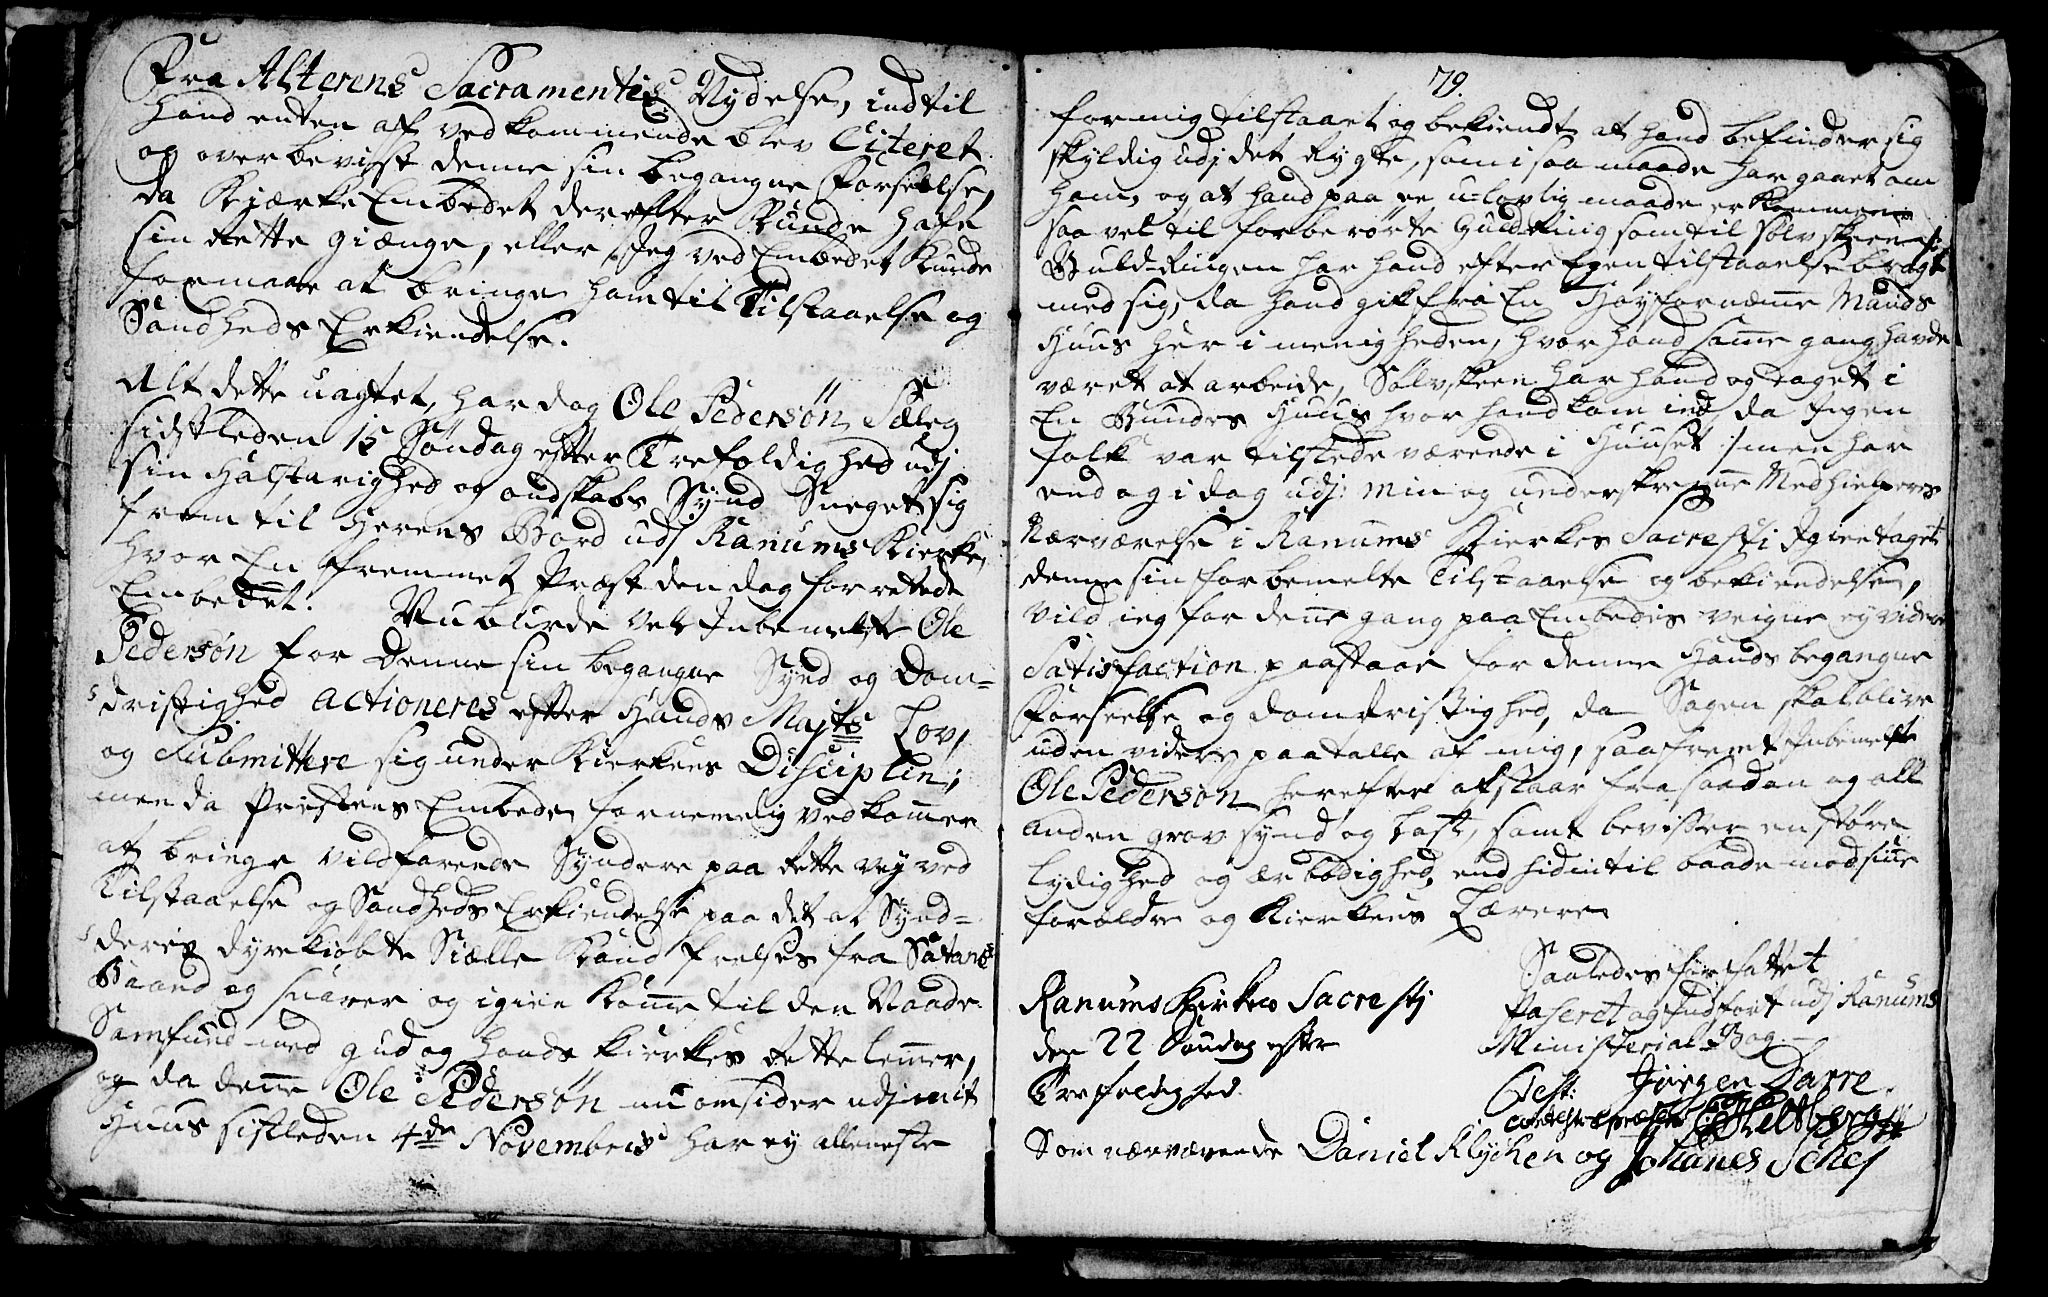 fra Alterens Sacramentes Nydelse, indtil
Hand enten af vedkommende blev Citeret
og overbevist denne sin begangne Forseelse,
da KjærkeEmbedet derefter kunde hafe
sin rette giænge, eller Jeg ved Embedet kunde
formaae at bringe ham til Tilstaaelse og
Sandheds Erkiendelse.
Alt dette uagtet, har dog Ole Pedersön Sæleg
sidstleden 15 Söndag efter Trefoldighed udj
sin Halstarighed og ondskabs Synd Sneget sig
frem til Herens Bord udj Ranums Kierke,
hvor En fremmet Præst den dag forrettede
Embedet. Nu burde vel Inbemelte Ole
Pedersön for denne sin begangne Synd og Dom-
dristighed actioneres efter Hands Majts Lov,
og Submittere sig under Kierkens Disciplin;
men da Præstens Embede fornemelig vedkommer
at bringe vildfarende Syndere paa rette vej ved
Tilstaaelse og Sandheds Erkiendelse paa det at Synd-
deres dyrekiöbte Siælle kand frelses fra Satans
Baand og snarer og igien komme til den Naade
Samfund med gud og hands kierkes rette lemmer,
og da denne Ole Pedersön nu omsider udj mit
Huus sistleden 4de Novembris har ej alleneste
79.
for mig tilstaaet og bekiendt at hand befinder sig
skyldig udj det Rygte, som i saa maade har gaaet om
ham, og at hand paa en u-lovlig maade er kommen
saa vel til forberörte Guldring som til sölvskeen /:
Guldringen har hand efter Egen tilstaaelse bragt
med sig, da hand gik fra En Höyfornemme Mands
Huus her i menigheden, hvor hand samme gang havde
været at arbeide, Sölvskeen har hand og taget i
En Bundes Huus hvor hand kom ind da Ingen
folk var tilstede værende i Huuset :/ men har
end og i dag udj min og underskrevne Medhielperes
Nærværelse i Ranums Kierkes Sacrestj Igientaget
denne sin forbemelte Tilstaaelse og bekiendelse,
vild ieg for denne gang paa Embedes veigne ej videre
Satisfaction paastaae for denne Hands begangne
Forseelse og domdristighed, da Sagen skal blive
uden videre paatalle af mig, saafremt Inbemelte
Ole Pedersön herefter afstaar fra saadan og all
anden grov synd og Last, samt beviser en större
Lydighed og ærbödighed, end hidintil baade mod sine
foreldre og Kierkens Lærere
Ranums Kirkes Sacrestj
den 22 Söndag efter
Trefoldighed.
Saaledes forfattet
Paseret og Indfört udj Ranums
Ministerial Bog
Test: Jörgen Darre.
Som nærværende Daniel Klÿchen og Johanes Schej